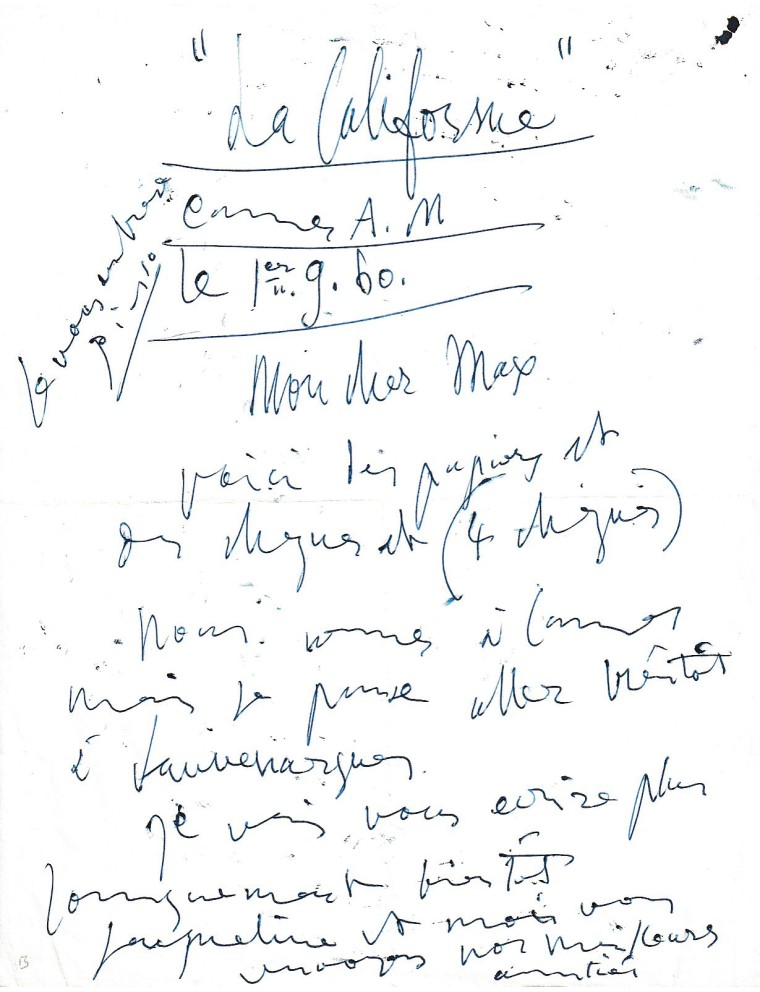 " La Californie "
Cannes A. M
le 1er. 9. 60.
Mon cher Max
voici les papiers et
des cheques et (4 cheques)
Nous sommes à Cannes
mais je panse aller bientôt
à Vauvenargues.
je vais vous ecrire plus
longuement bientôt
Jacqueline et moi vous
envoyons nos meilleurs
amitiés
Je vous embrasse
Picasso